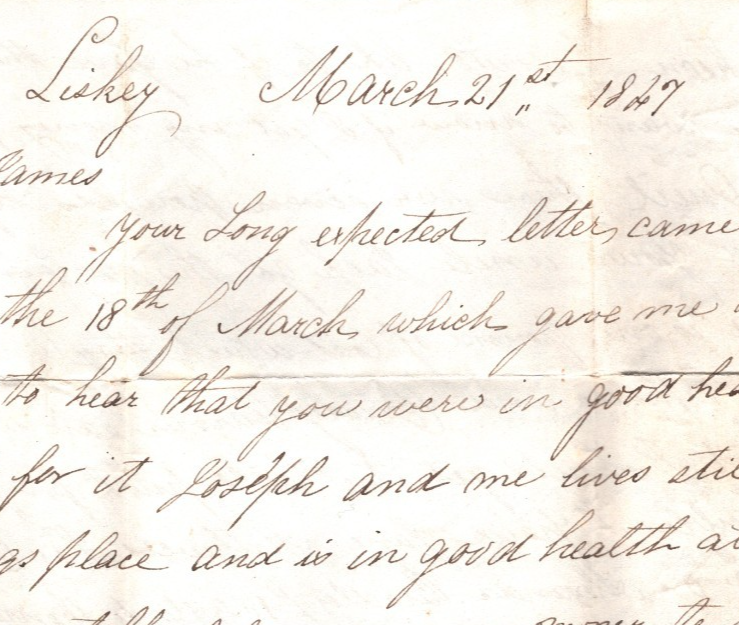 Liskey March 21st 1847
James
your Long expected letter came
the 18th of March which gave me
to hear that you were in good hea
for it Joseph and me lives stil
gs place and is in good health a
money to